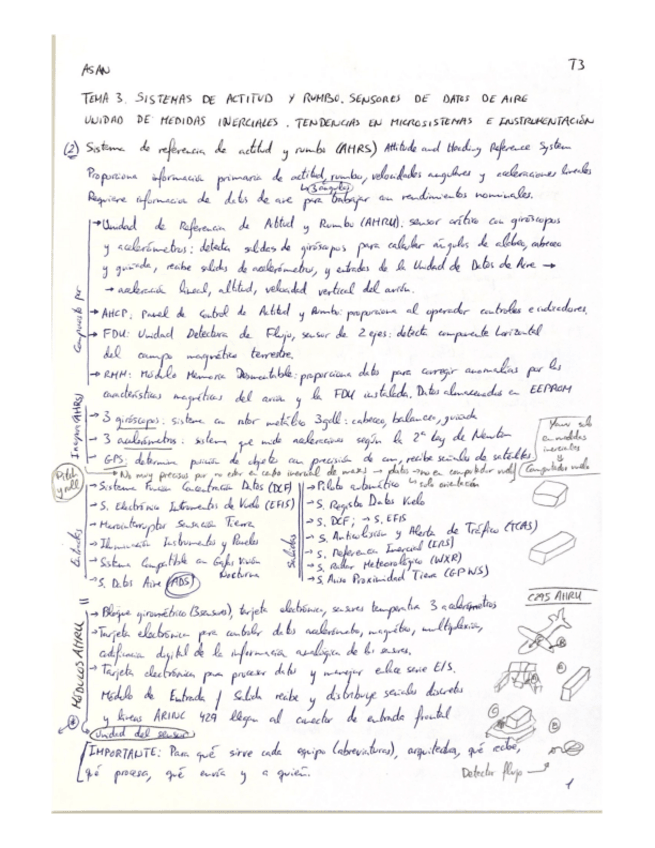 ASAN
T3
TEMA 3. SISTEMAS DE ACTITUD Y RUMBO. SENSORES DE DATOS DE AIRE
UNIDAD DE MEDIDAS INERCIALES. TENDENCIAS EN MICROSISTEMAS E INSTRUMENTACIÓN
(2) Sistema de referencia de actitud y rumbo (AHRS) Attitude and Heading Reference System
Proporciona información primaria de actitud, rumbo, velocidades angulares y aceleraciones lineales
↳ 3 ángulos
Requiere información de datos de aire para trabajar con rendimientos nominales.
Compuesto por
→ Unidad de Referencia de Actitud y Rumbo (AHRU): sensor crítico con giróscopos
y acelerómetros: detecta salidas de giróscopos para calcular ángulos de alabeo, cabeceo
y guiñada, recibe salidas de acelerómetros, y entradas de la Unidad de Datos de Aire →
→ aceleración lineal, altitud, velocidad vertical del avión.
→ AHCP: Panel de Control de Actitud y Rumbo: proporciona al operador controles e indicadores.
→ FDU: Unidad Detectora de Flujo, sensor de 2 ejes: detecta componente horizontal
del campo magnético terrestre.
→ RMM: Módulo Memoria Desmontable: proporciona datos para corregir anomalías por las
características magnéticas del avión y la FDU instalada. Datos almacenados en EEPROM
AHRS)
- 3 giróscopos: sistema con rotor metálico 3gdl: cabeceo, balanceo, guiñada
- 3 acelerómetros: sistema que mide aceleraciones según la 2ª ley de Newton
- GPS: determina posición de objetos con precisión de cm, recibe señales de satélites
Pitch
y roll
Computador vuelo
Entradas
→ Sistema Función Concentración Datos (DCF)
→ S. Electrónico Instrumentos de Vuelo (EFIS)
→ Microinterruptor Sensación Tierra
→ Iluminación Instrumentos y Paneles
→ Sistema Compatible con Gafas Visión
Nocturna
→ S. Datos Aire (ADS)
Salidas
→ Piloto automático ↳ solo orientación
→ S. Registro Datos Vuelo
→ S. DCF; → S. EFIS
→ S. Anticolisión y Alerta de Tráfico (TCAS)
→ S. Referencia Inercial (IRS)
→ S. Radar Meteorológico (WXR)
→ S. Aviso Proximidad Tierra (GPWS)
C295 AHRU
MÓDULOS AHRU
→ Bloque girométrico (3sensores), tarjeta electrónica, sensores temperatura 3 acelerómetros
→ Tarjeta electrónica para controlar datos acelerómetro, magnéticos, multiplexión,
codificación digital de la información analógica de los sensores.
→ Tarjeta electrónica para procesar datos y manejar enlace serie E/S.
Módulo de Entrada / Salida recibe y distribuye señales discretas
y líneas ARINC 429 llegan al conector de entrada frontal
Unidad del sensor
IMPORTANTE: Para qué sirve cada equipo (abreviaturas), arquitectura, qué recibe,
qué procesa, qué envía y a quién.
Detector flujo
1